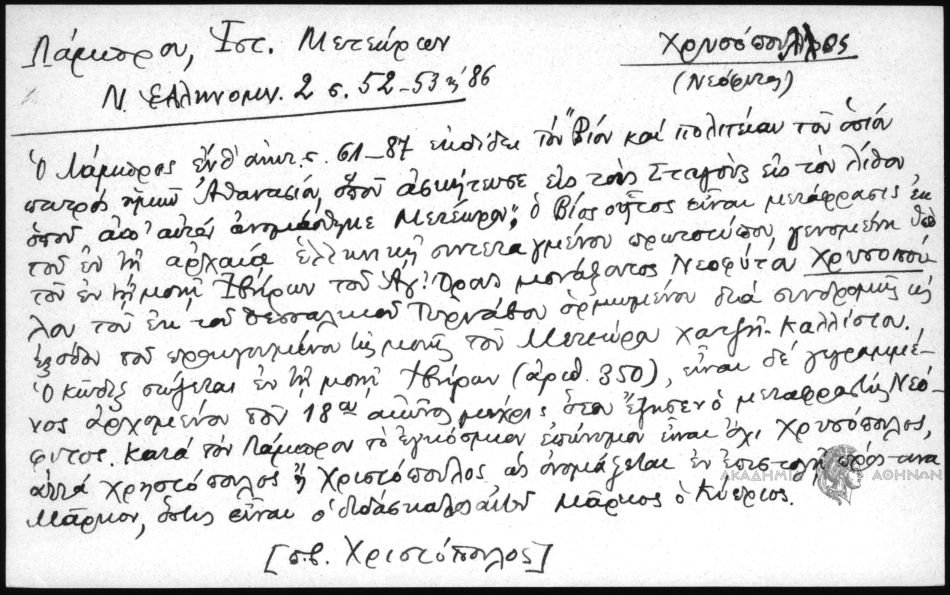 Λάμπρου, Ιστ. Μετεώρων
Χρυσόπουλος
Ν. Ελληνομν. 2 σ. 52-53 & 86
(Νεόφυτος)
Ὁ Λάμπρος ἐνθ' ἀνωτ. σ. 61-87 ἐκδίδει τὸν "Βίον καὶ πολιτείαν τοῦ ὁσίου
πατρὸς ἡμῶν Ἀθανασίου, ὅπου ἀσκήτευσε εἰς τοὺς Σταγοὺς εἰς τὸν λίθον
ὁποῦ ἀπ' αὐτὸν ὀνομάσθηκε Μετέωρον", ὁ Βίος οὗτος εἶναι μετάφρασις ἐκ
τοῦ ἐν τῇ ἀρχαίᾳ ἑλληνικῇ συντεταγμένου πρωτοτύπου, γενομένη ὑπὸ
τοῦ ἐν τῇ μονῇ Ἰβήρων τοῦ Ἁγ. Ὄρους μονάζοντος Νεοφύτου Χρυσοπού-
λου τοῦ ἐκ τοῦ Θεσσαλικοῦ Τυρνάβου ὁρμωμένου διὰ συνδρομῆς κ
ἐξόδου τοῦ προηγουμένου τῆς μονῆς τοῦ Μετεώρου Χατζῆ-Καλλίστου.
Ὁ κῶδιξ σώζεται ἐν τῇ μονῇ Ἰβήρων (ἀριθ. 350), εἶναι δὲ γεγραμμέ-
νος ἀρχομένου τοῦ 18ου αἰῶνος μέχρις ὅτου ἔζησεν ὁ μεταφραστὴς Νεό-
φυτος. Κατὰ τὸν Λάμπρον τὸ ἐγκόσμιον ἐπώνυμον εἶναι ὄχι Χρυσόπουλος,
ἀλλὰ Χρηστόπουλος ἢ Χριστόπουλος ὡς ὀνομάζεται ἐν ἐπιστολῇ πρός τινα
Μᾶρκον, ὅστις εἶναι ὁ διδάσκαλος αὐτοῦ Μᾶρκος ὁ Κύπριος.
[σ.β. Χριστόπουλος]
ΑΚΑΔΗΜΙΑ ΑΘΗΝΩΝ